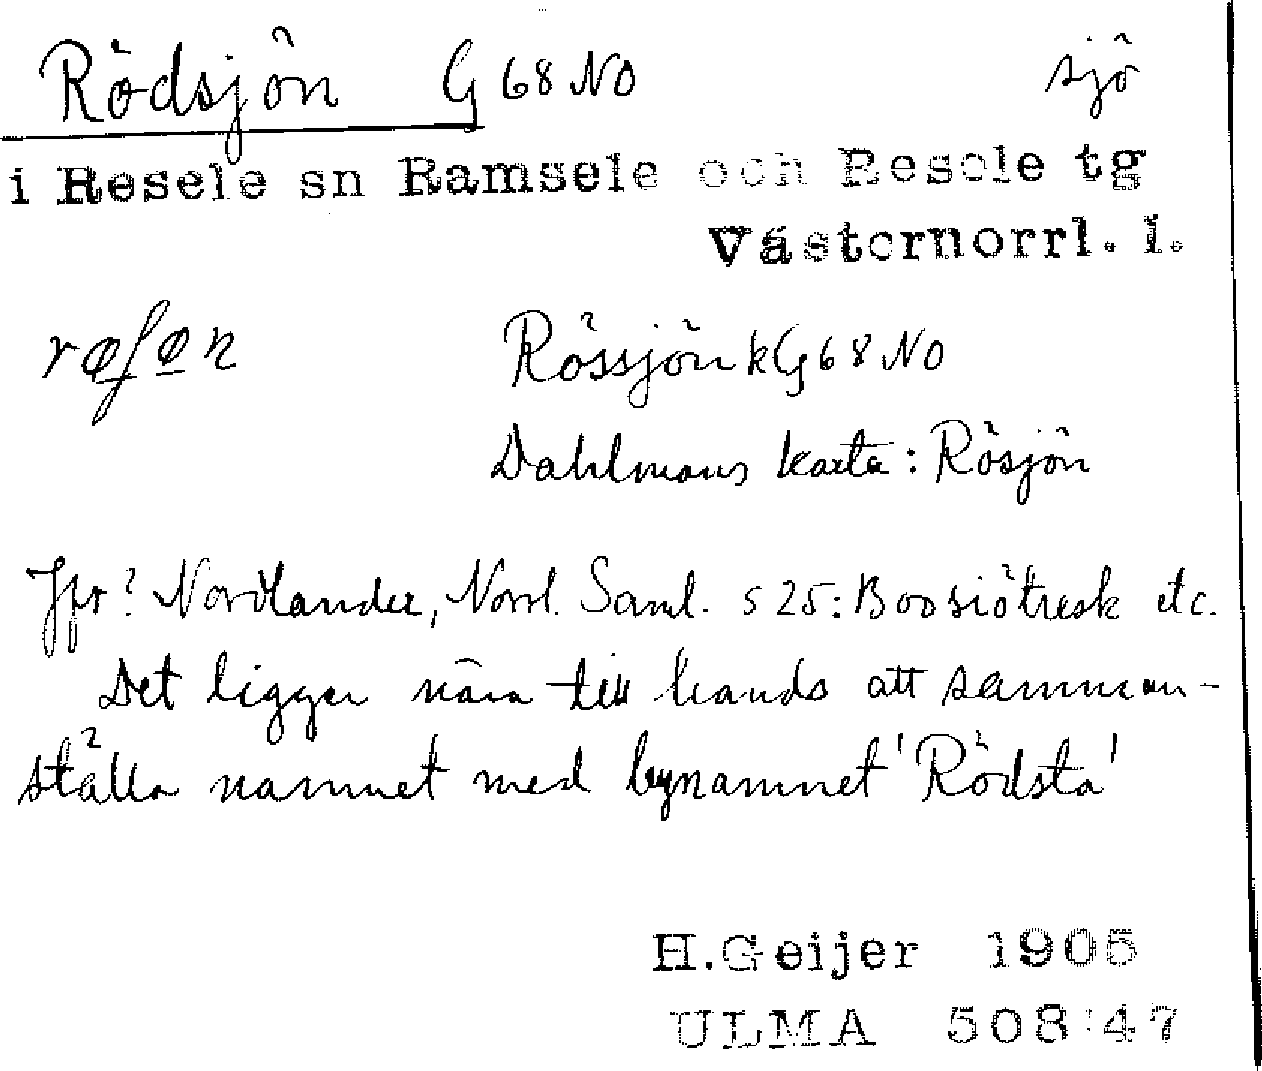 Rödsjön G 68 NO sjö
i Resele sn Ramsele och Resele tg
Västernorrl. l.
Rössjön k G 68 NO
Dahlmans karta: Rösjön
Jfr? Nordlander, Norrl. Saml. s 25: Boosiötresk etc.
Det ligger nära till hands att samman-
ställa namnet med bynamnet 'Rödsta'
H. Geijer 1905
ULMA 508:47